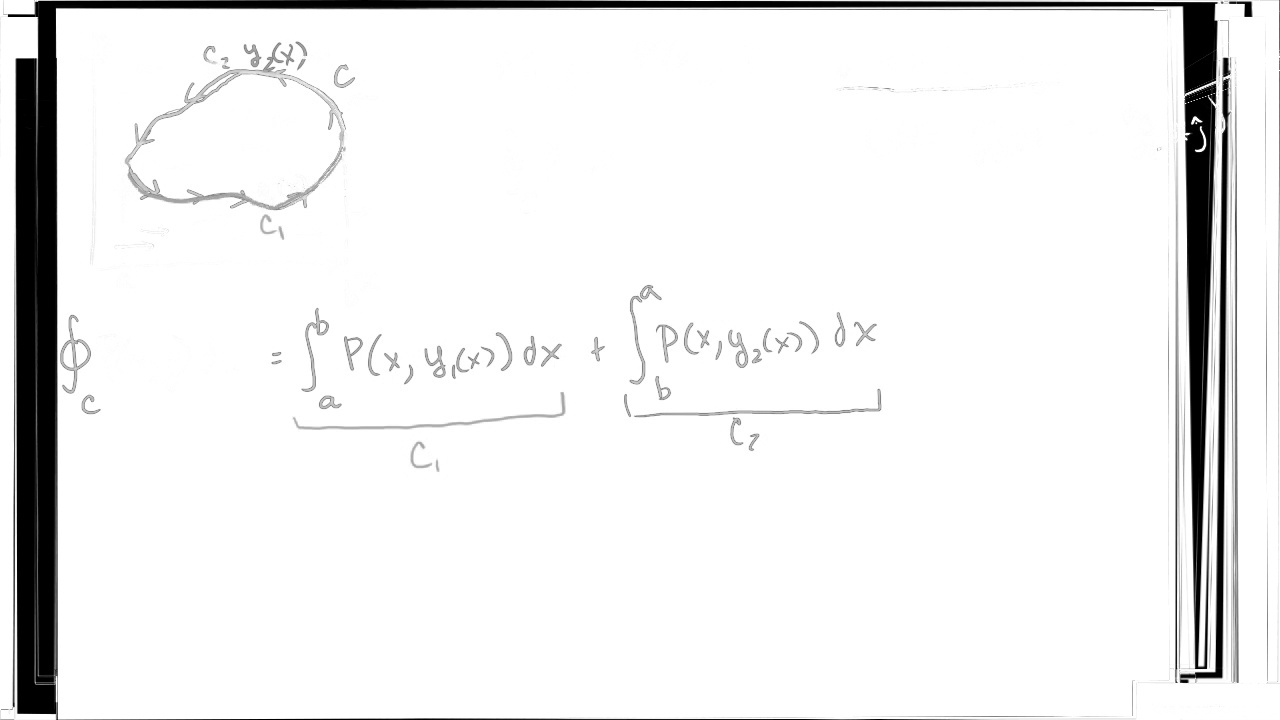 C₂ y₂(x)
C
ĵ
C₁
∮_C = ∫_a^b P(x, y₁(x)) dx + ∫_b^a P(x, y₂(x)) dx
C₁ C₂